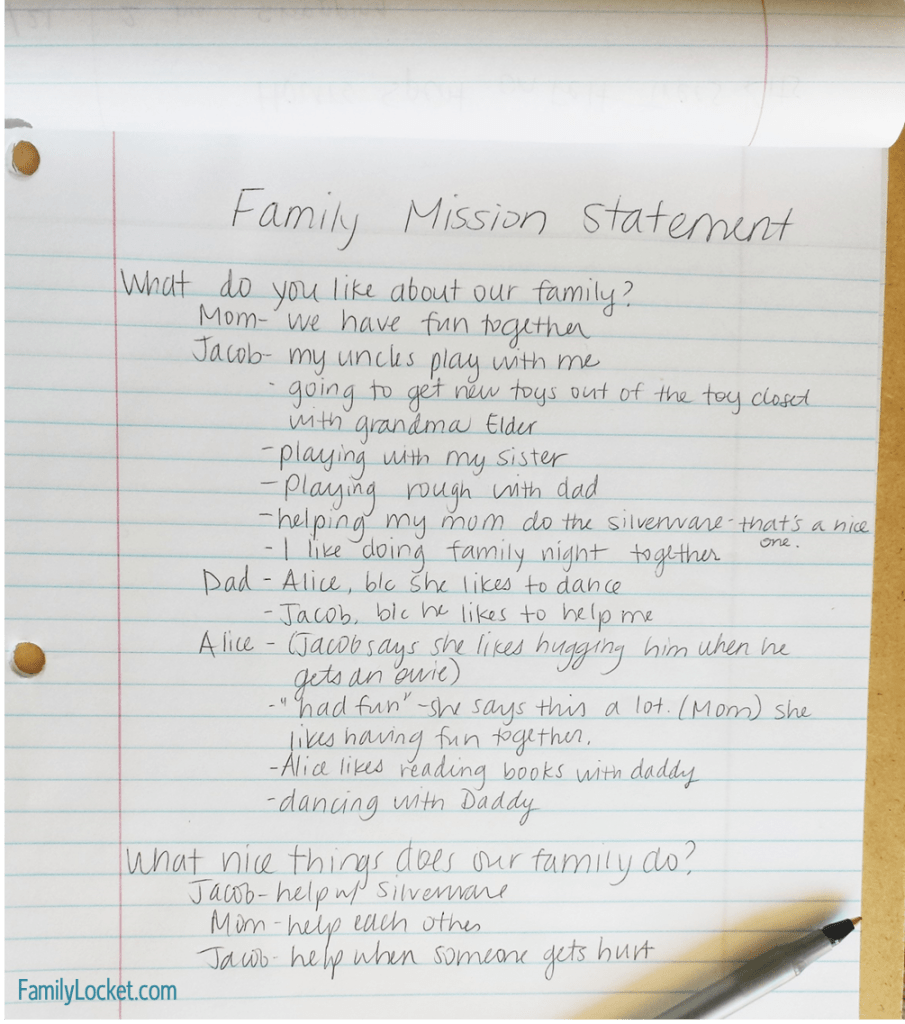 Family Mission Statement
What do you like about our family?
Mom- we have fun together
Jacob- my uncles play with me
- going to get new toys out of the toy closet
with grandma Elder
- playing with my sister
- Playing rough with dad
- helping my mom do the silverware- that's a nice
one.
- I like doing family night together
Dad - Alice, b/c she likes to dance
- Jacob, b/c he likes to help me
Alice - (Jacob says she likes hugging him when he
gets an owie)
- "had fun" - she says this a lot. (Mom) she
likes having fun together.
- Alice likes reading books with daddy
- dancing with Daddy
What nice things does our family do?
Jacob- help w/ silverware
Mom- help each other
Jacob- help when someone gets hurt
FamilyLocket.com